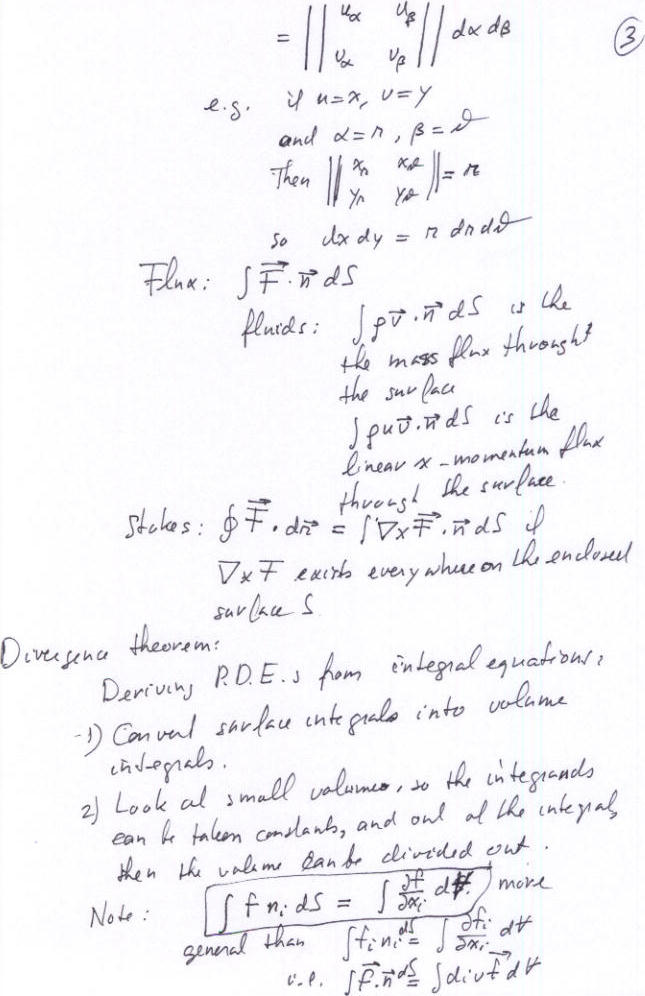 = || u_α u_β || dα dβ ③
v_α v_β
e.g. if u=x, v=y
and α=r, β=ϑ
Then || x_r x_ϑ || = r
y_r y_ϑ
so dx dy = r dr dϑ
Flux: ∫ F⃗ · n⃗ dS
fluids: ∫ ρv⃗ · n⃗ dS is the
the mass flux through
the surface
∫ ρuv⃗ · n⃗ dS is the
linear x-momentum flux
through the surface.
Stokes: ∮ F⃗ · dr⃗ = ∫ ∇×F⃗ · n⃗ dS if
∇×F exists everywhere on the enclosed
surface S
Divergence theorem:
Deriving P.D.E.s from integral equations:
1) Convert surface integrals into volume
integrals.
2) Look at small volumes, so the integrands
can be taken constants, and out of the integrals,
then the volume can be divided out.
Note: ∫ f n_i dS = ∫ ∂f/∂x_i dV more
general than ∫ f_i n_i dS = ∫ ∂f_i/∂x_i dV
i.e. ∫ f⃗ · n⃗ dS = ∫ div f⃗ dV